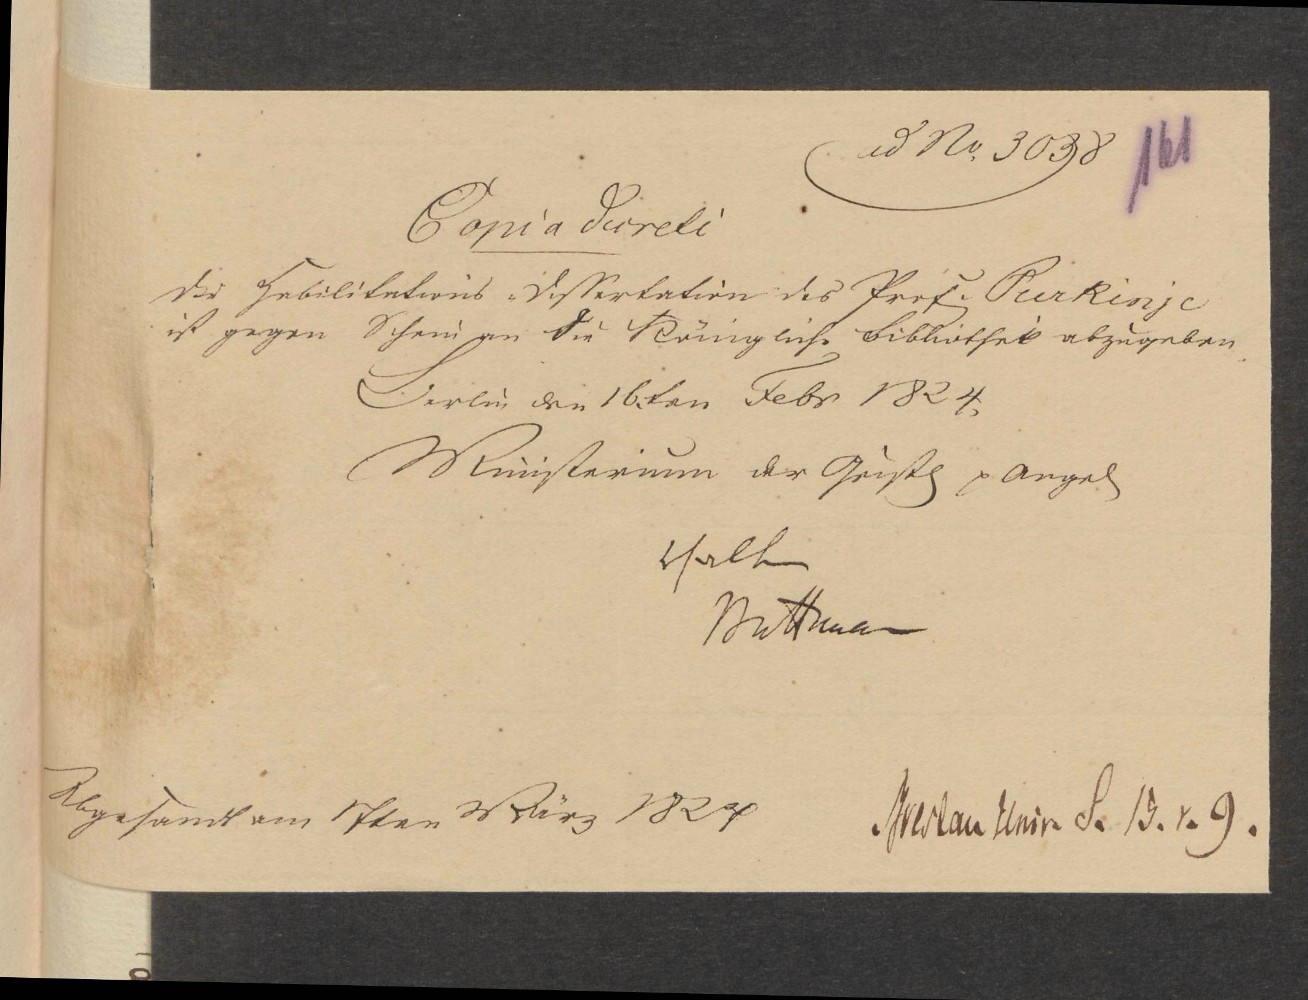 ad No. 3038
161
Copia Decreti
Die Habilitations-Dissertation des Prof. Purkinje
ist gegen Schein an die Königliche Bibliothek abzugeben.
Berlin den 16ten Febr 1824.
Ministerium der Geistl p Angel
Buttmann
Abgesandt am 17ten März 1824
Breslau Univ. S. 13. r. 9.